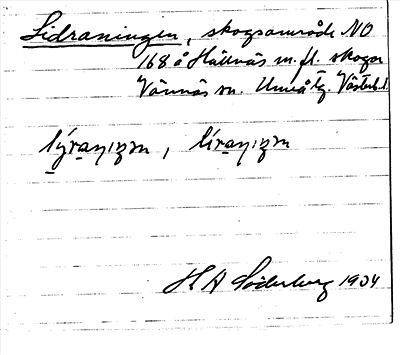 Lidraningen, skogsområde NO
168 å Hällnäs m.fl. skogar
Vännäs sn. Umeå tg. Västerb. l.
H A Söderberg 1934